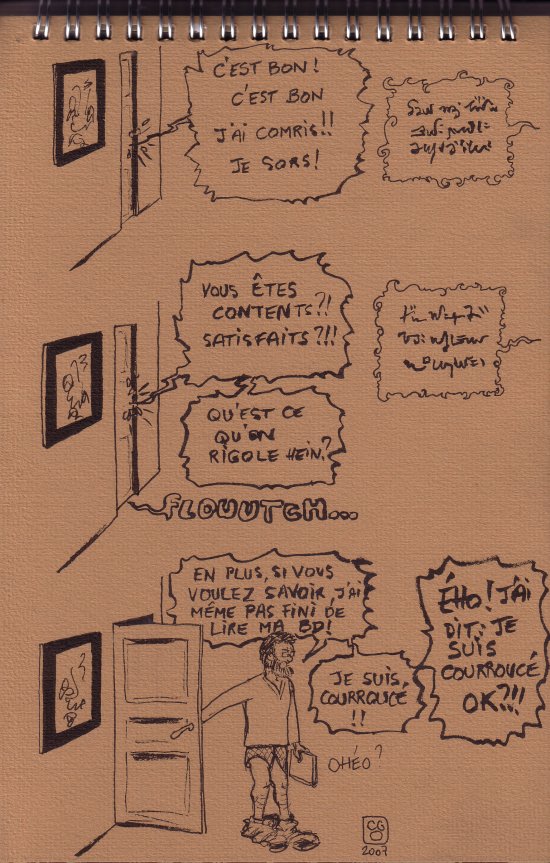 C'EST BON!
C'EST BON
J'AI COMRIS!!
JE SORS!
VOUS ÊTES
CONTENTS?!
SATISFAITS?!!!
QU'EST CE
QU'ON
RIGOLE HEIN?
FLOUUTCH...
EN PLUS, SI VOUS
VOULEZ SAVOIR, J'AI
MÊME PAS FINI DE
LIRE MA BD!
JE SUIS,
COURROUCÉ
!!
ÉHO! J'AI
DIT: JE
SUIS
COURROUCÉ
OK?!!
OHÉO?
CG
2007